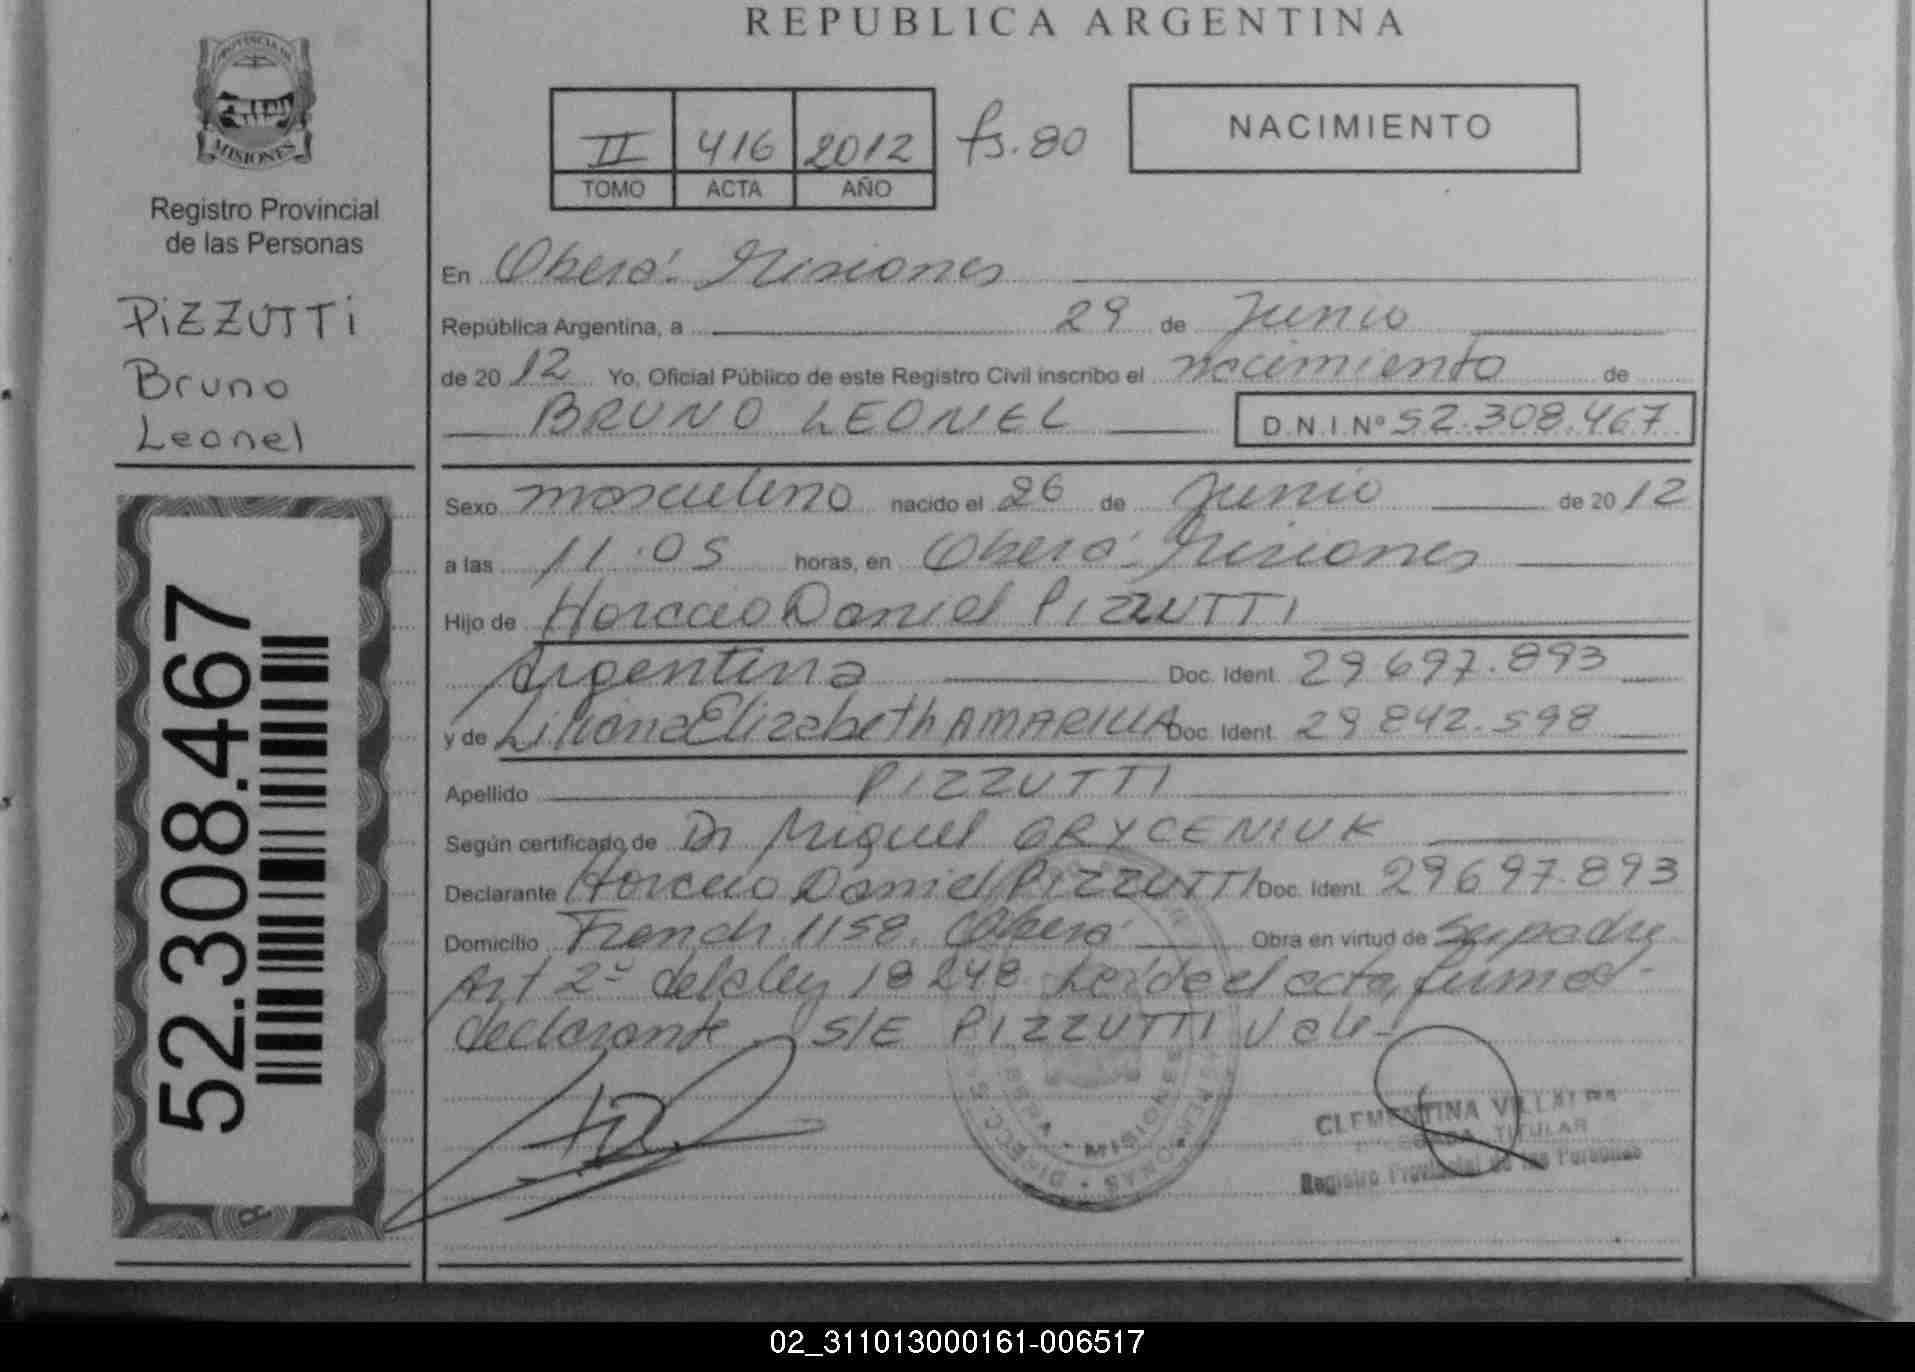 REPUBLICA ARGENTINA
PROVINCIA DE
MISIONES
Registro Provincial
de las Personas
PIZZUTTI
Bruno
Leonel
52.308.467
II 416 2012 fs. 80
TOMO ACTA AÑO
NACIMIENTO
En Oberá- Misiones
República Argentina, a 29 de Junio
de 2012 Yo, Oficial Público de este Registro Civil inscribo el nacimiento de
BRUNO LEONEL D.N.I. Nº 52.308.467
Sexo masculino nacido el 26 de Junio de 2012
a las 11:05 horas, en Oberá- Misiones
Hijo de Horacio Daniel PIZZUTTI
Argentina Doc. Ident. 29697.893
y de Liliana Elizabeth AMARILLA Doc. Ident. 29842.598
Apellido PIZZUTTI
Según certificado de Dr Miguel GRYCENIUK
Declarante Horacio Daniel PIZZUTTI Doc. Ident. 29697.893
Domicilio French 1158. Oberá Obra en virtud de Su padre
Art 2º de la ley 18248. Leída el acta, firma el
declarante S/E PIZZUTTI Vale-
MISIONES
CLEMENTINA VILLALBA
TITULAR
Registro Provincial de las Personas
02_311013000161-006517